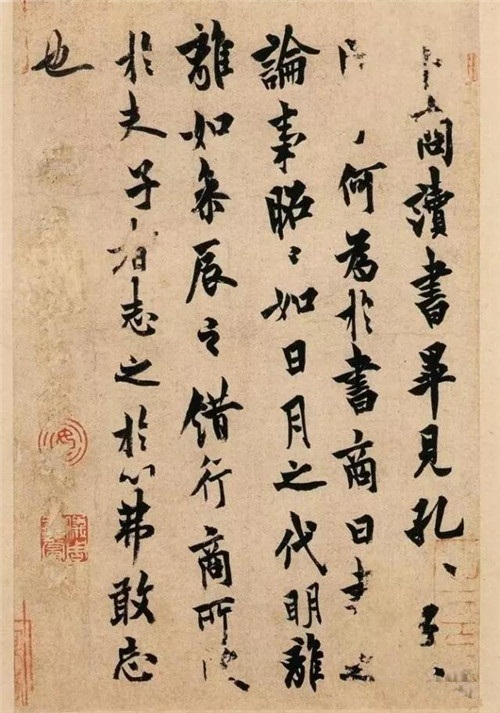 卜商讀書畢見孔〻子〻
何為於書商曰書之
論事昭〻如日月之代明離
離如參辰之錯行商所受
於夫子者志之於心弗敢忘
也